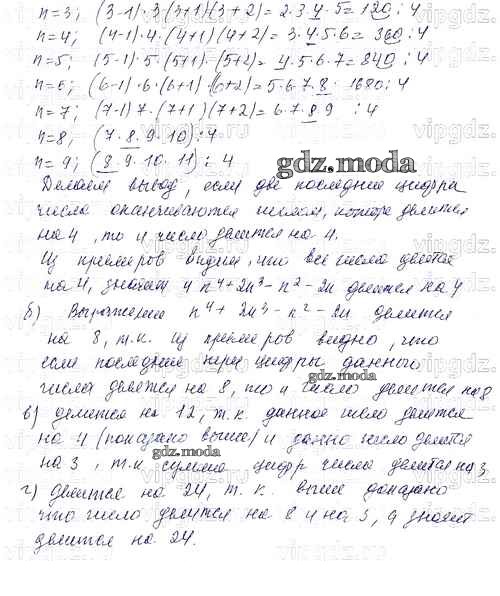 n=3; (3-1)·3(3+1)(3+2)=2·3·4·5=120⋮4
n=4; (4-1)·4·(4+1)(4+2)=3·4·5·6=360⋮4
n=5; (5-1)·5·(5+1)·(5+2)=4·5·6·7=840⋮4
n=6; (6-1)·6·(6+1)·(6+2)=5·6·7·8=1680⋮4
n=7; (7-1)7·(7+1)(7+2)=6·7·8·9 ⋮4
n=8, (7·8·9·10)⋮4
n=9; (8·9·10·11)⋮4
gdz.moda
Делаем вывод, если две последние цифра
числа оканчиваются числом, которое делится
на 4, то и число делится на 4.
Из примеров видно, что все числа делятся
на 4, значит и n⁴+2n³-n²-2n делится на 4
б) Выражение n⁴+2n³-n²-2n делится
на 8, т.к. из примеров видно, что
если последние цифры данного
gdz.moda
числа делятся на 8, то и число делится на 8
в) делится на 12, т.к. данное число делится
на 4 (показано выше) и данно число делится
gdz.moda
на 3, т.к. сумма цифр числа делится на 3.
г) делится на 24, т.к. выше доказано
что число делится на 8 и на 3, а значит
делится на 24.
vipgdz